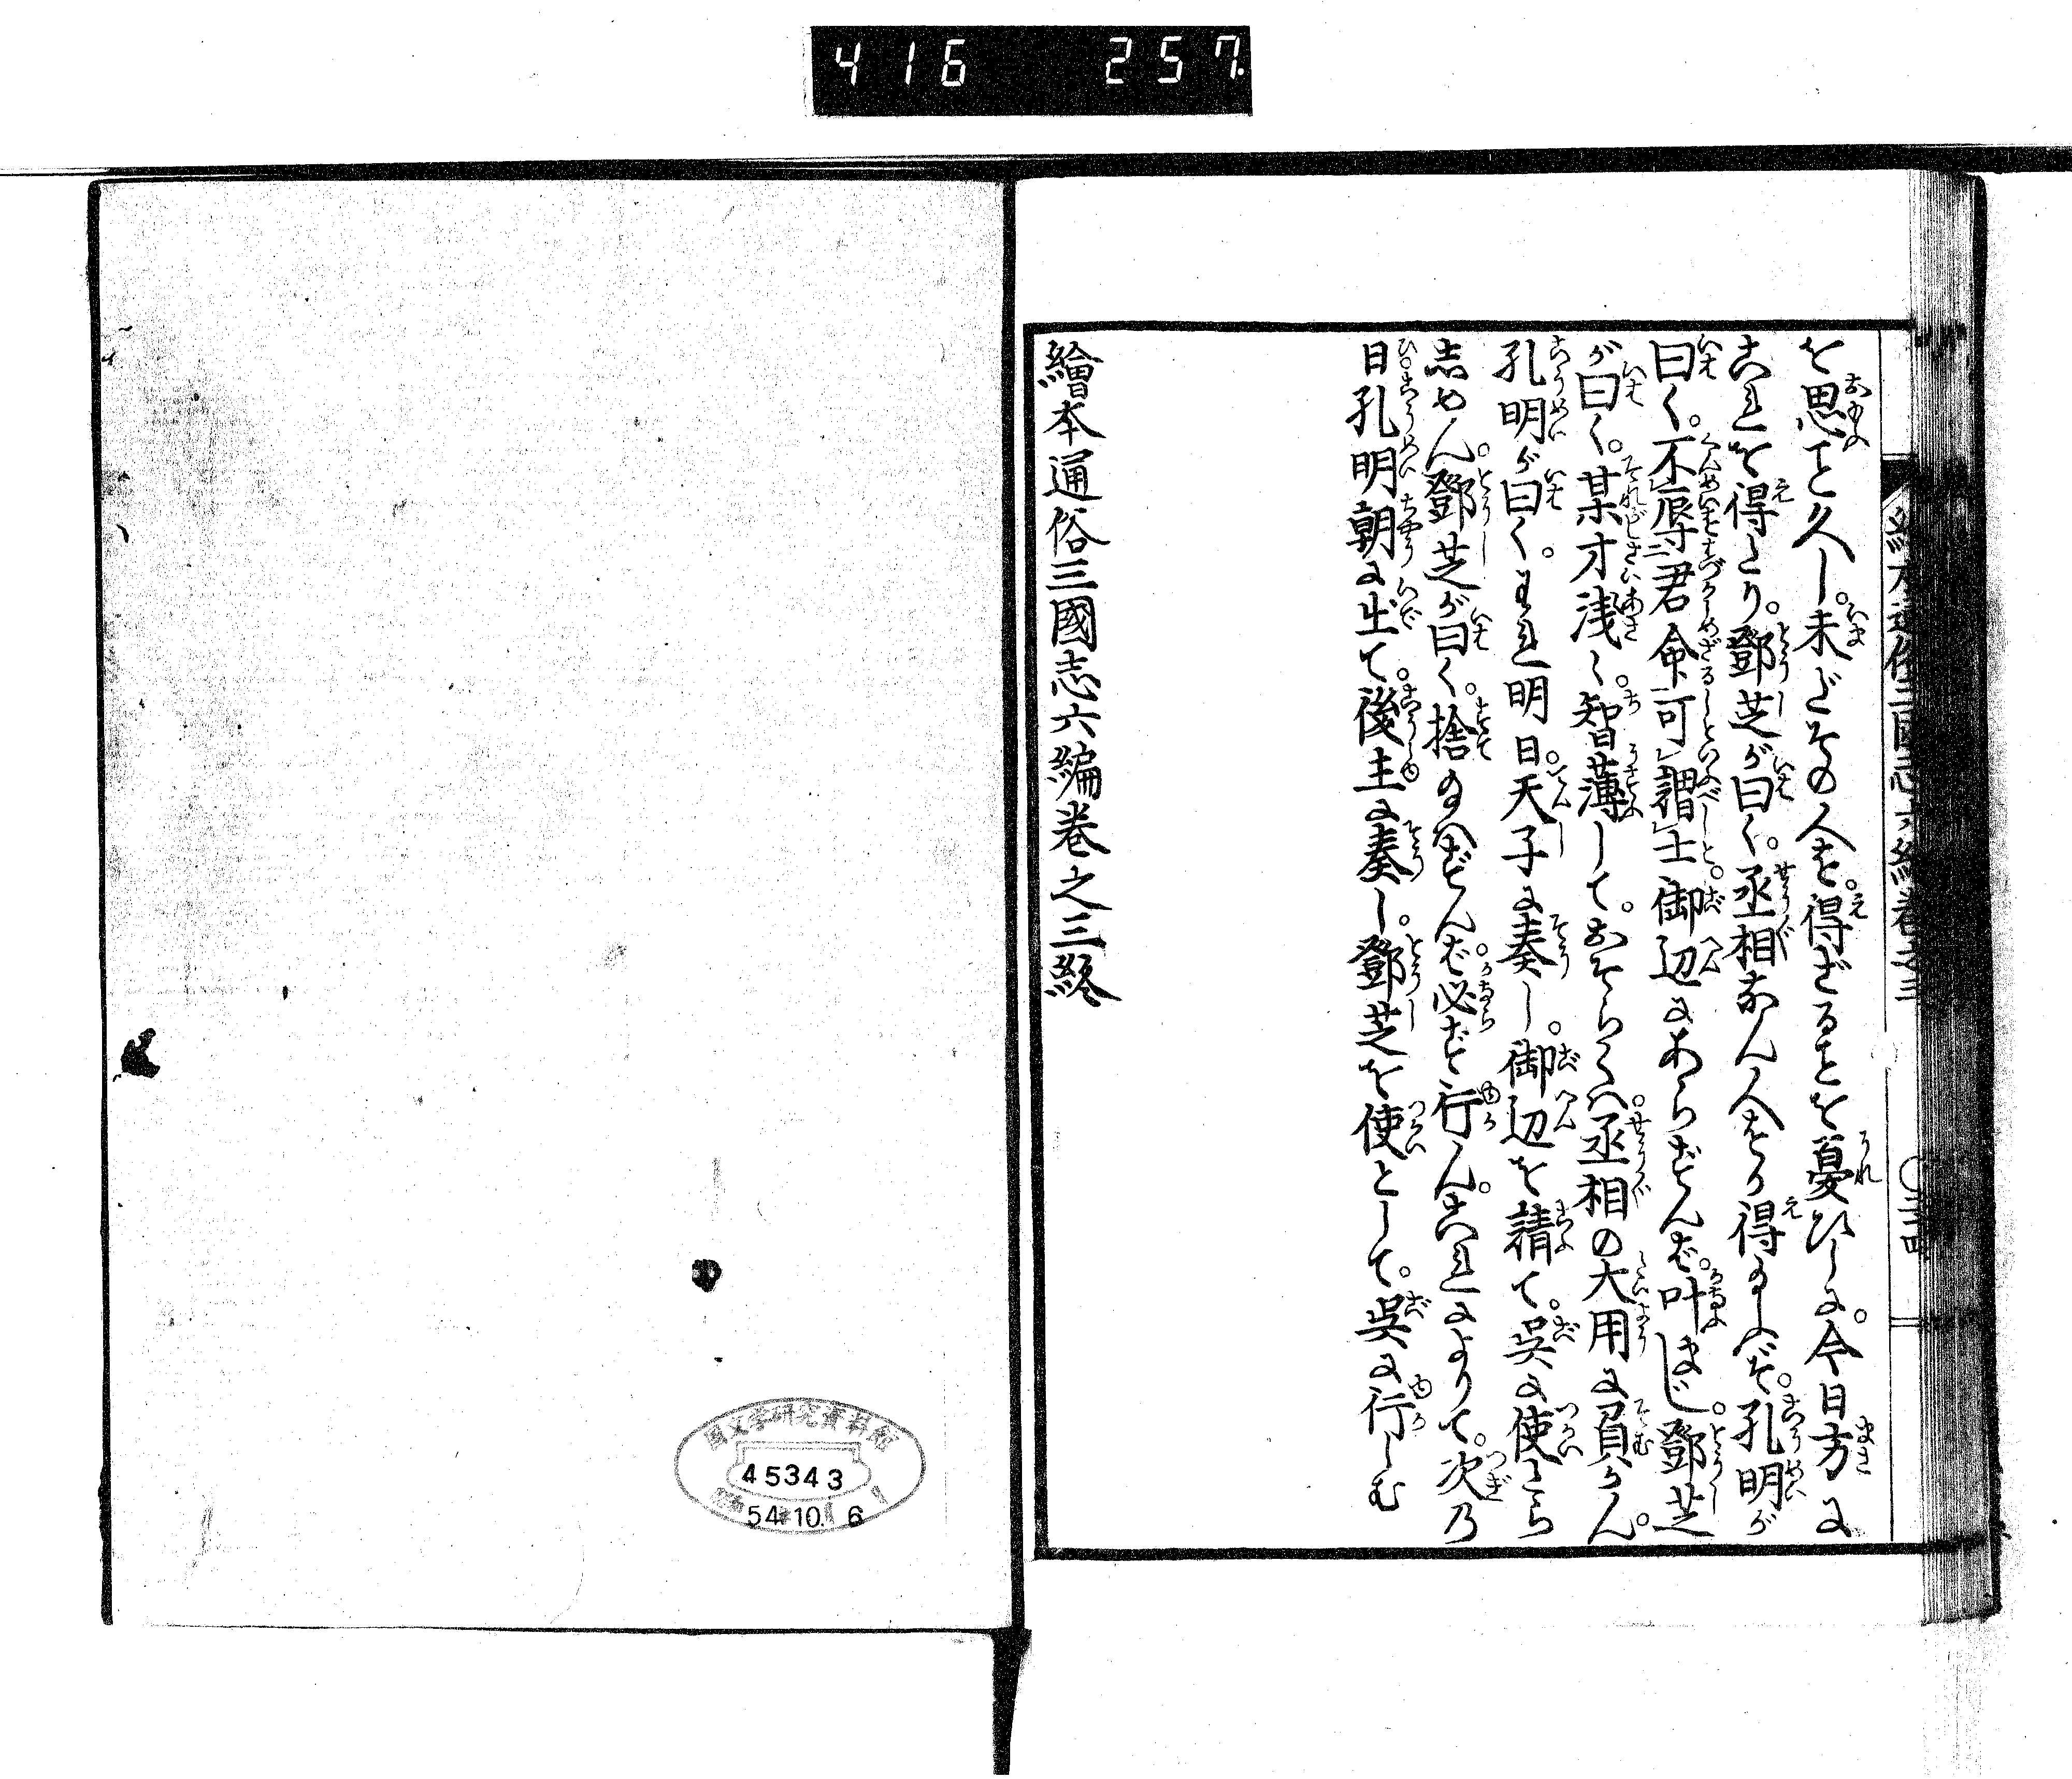 416 257.
を思こと久し。未だその人を得ざることを憂ひしに。今日方に
これを得たり。鄧芝が曰く。丞相なん人をか得たまへる。孔明が
曰く。不辱君命可謂士御辺にあらざんば。叶まじ。鄧芝
が曰く。某才浅く。智薄して。おそらくハ。丞相の大用に負かん。
孔明が曰く。われ明日。天子に奏し。御辺を請て。呉に使たら
しめん。鄧芝が曰く。捨のまはずんば。必ず行ん。これによりて。次乃
日孔明朝に出て。後主に奏し。鄧芝を使として。呉に行しむ
繪本通俗三國志六編巻之三終
繪本通俗三國志六編巻之三
〇三十四
国文学研究資料館
45343
昭和54年10月6日